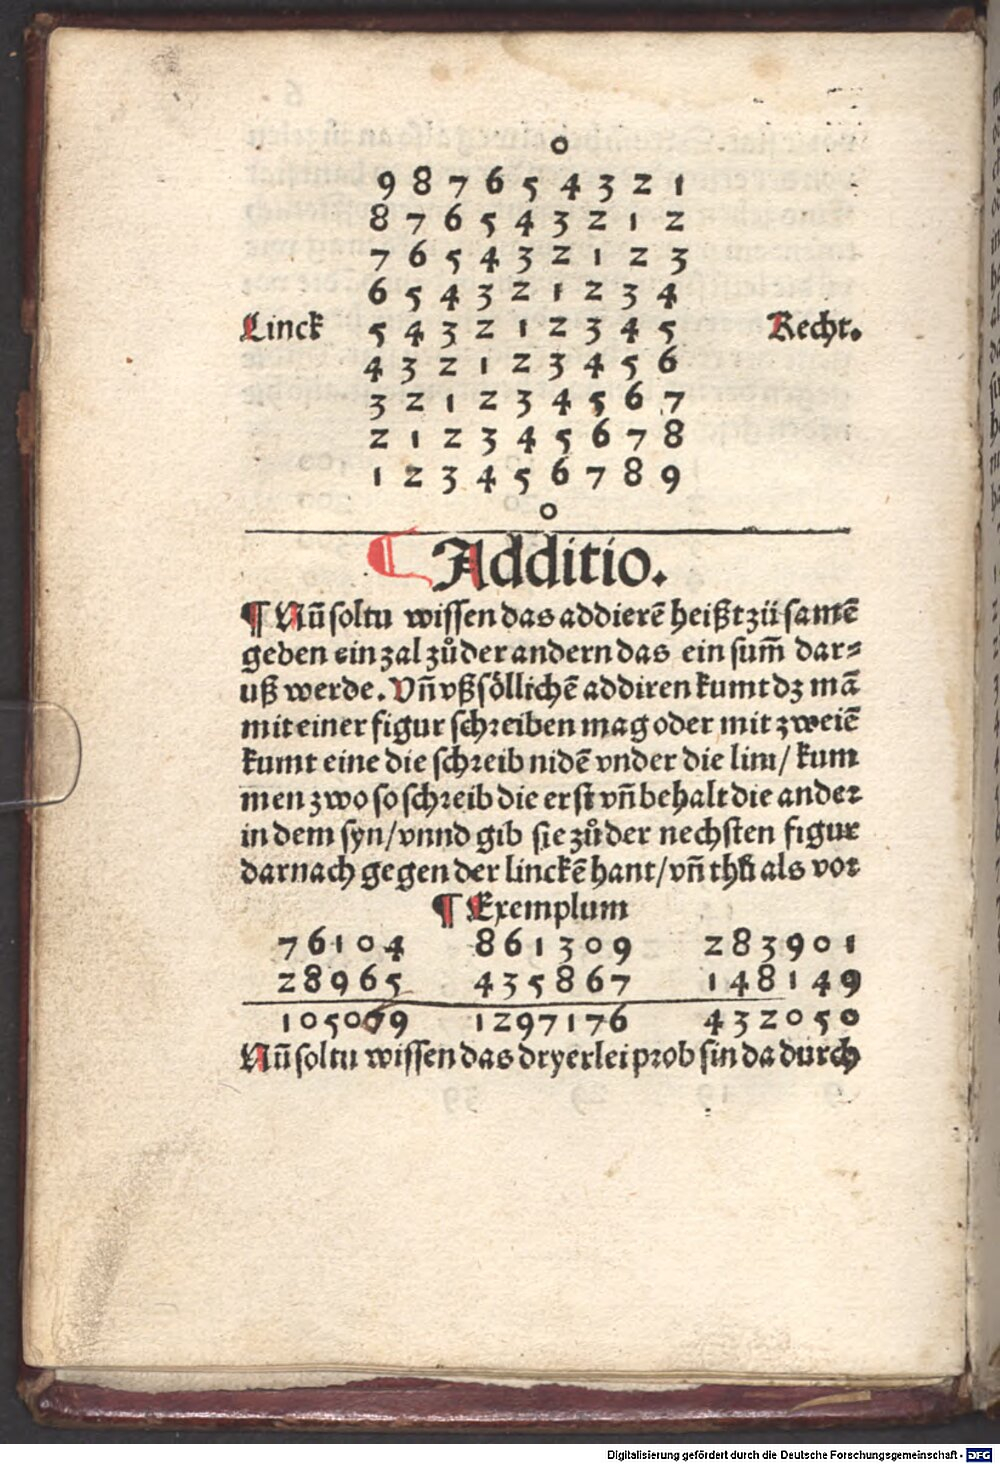 0
9 8 7 6 5 4 3 2 1
8 7 6 5 4 3 2 1 2
7 6 5 4 3 2 1 2 3
6 5 4 3 2 1 2 3 4
Linck 5 4 3 2 1 2 3 4 5 Recht.
4 3 2 1 2 3 4 5 6
3 2 1 2 3 4 5 6 7
2 1 2 3 4 5 6 7 8
1 2 3 4 5 6 7 8 9
0
¶ Additio.
¶ Nũ soltu wissen das addierẽ heißt zů samẽ
geben ein zal zů der andern das ein sum̃ dar⸗
uß werde. Vñ vß söllichẽ addiren kumt dz mã
mit einer figur schreiben mag oder mit zweiẽ
kumt eine die schreib nidẽ vnder die lini/ kum
men zwo so schreib die erst vñ behalt die ander
in dem syn/ vnnd gib sie zů der nechsten figur
darnach gegen der linckẽ hant/ vñ thů als vor
¶ Exemplum
76104 861309 283901
28965 435867 148149
105069 1297176 432050
Nũ soltu wissen das dryerlei prob sin da durch
Digitalisierung gefördert durch die Deutsche Forschungsgemeinschaft - DFG